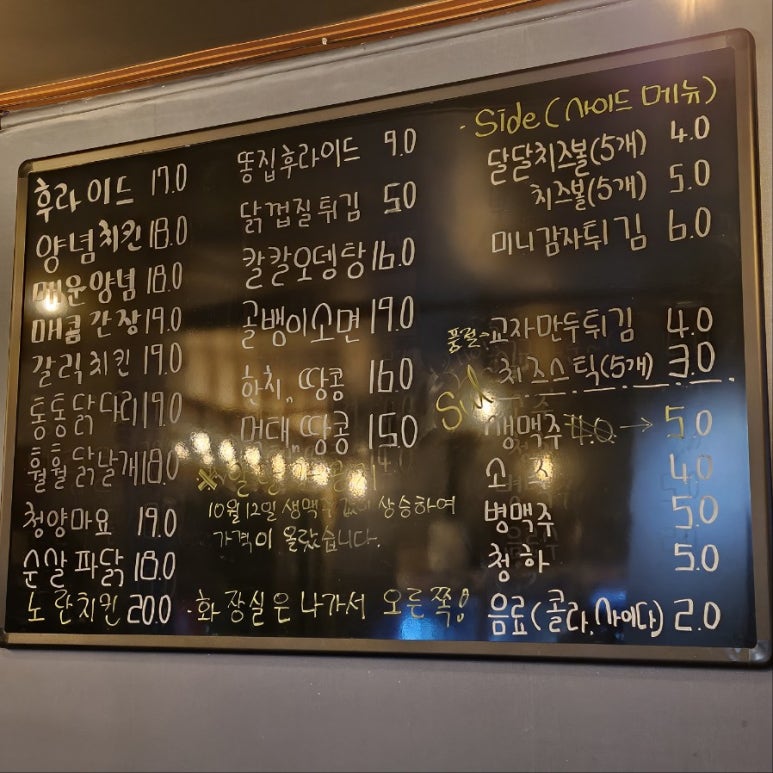 후라이드 17.0
양념치킨 18.0
매운양념 18.0
매콤간장 19.0
갈릭치킨 19.0
통통닭다리 19.0
훨훨닭날개 18.0
청양마요 19.0
순살파닭 18.0
노란치킨 20.0
똥집후라이드 9.0
닭껍질튀김 5.0
칼칼오뎅탕 16.0
골뱅이소면 19.0
한치, 땅콩 16.0
먹태, 땅콩 15.0
※
10월 12일 생맥주 값이 상승하여
가격이 올랐습니다.
·화장실은 나가서 오른쪽!
·Side (사이드 메뉴)
달달치즈볼(5개) 4.0
치즈볼(5개) 5.0
미니감자튀김 6.0
품절→교자만두튀김 4.0
치즈스틱(5개) 3.0
생맥주 4.0 → 5.0
소주 4.0
병맥주 5.0
청하 5.0
음료(콜라, 사이다) 2.0